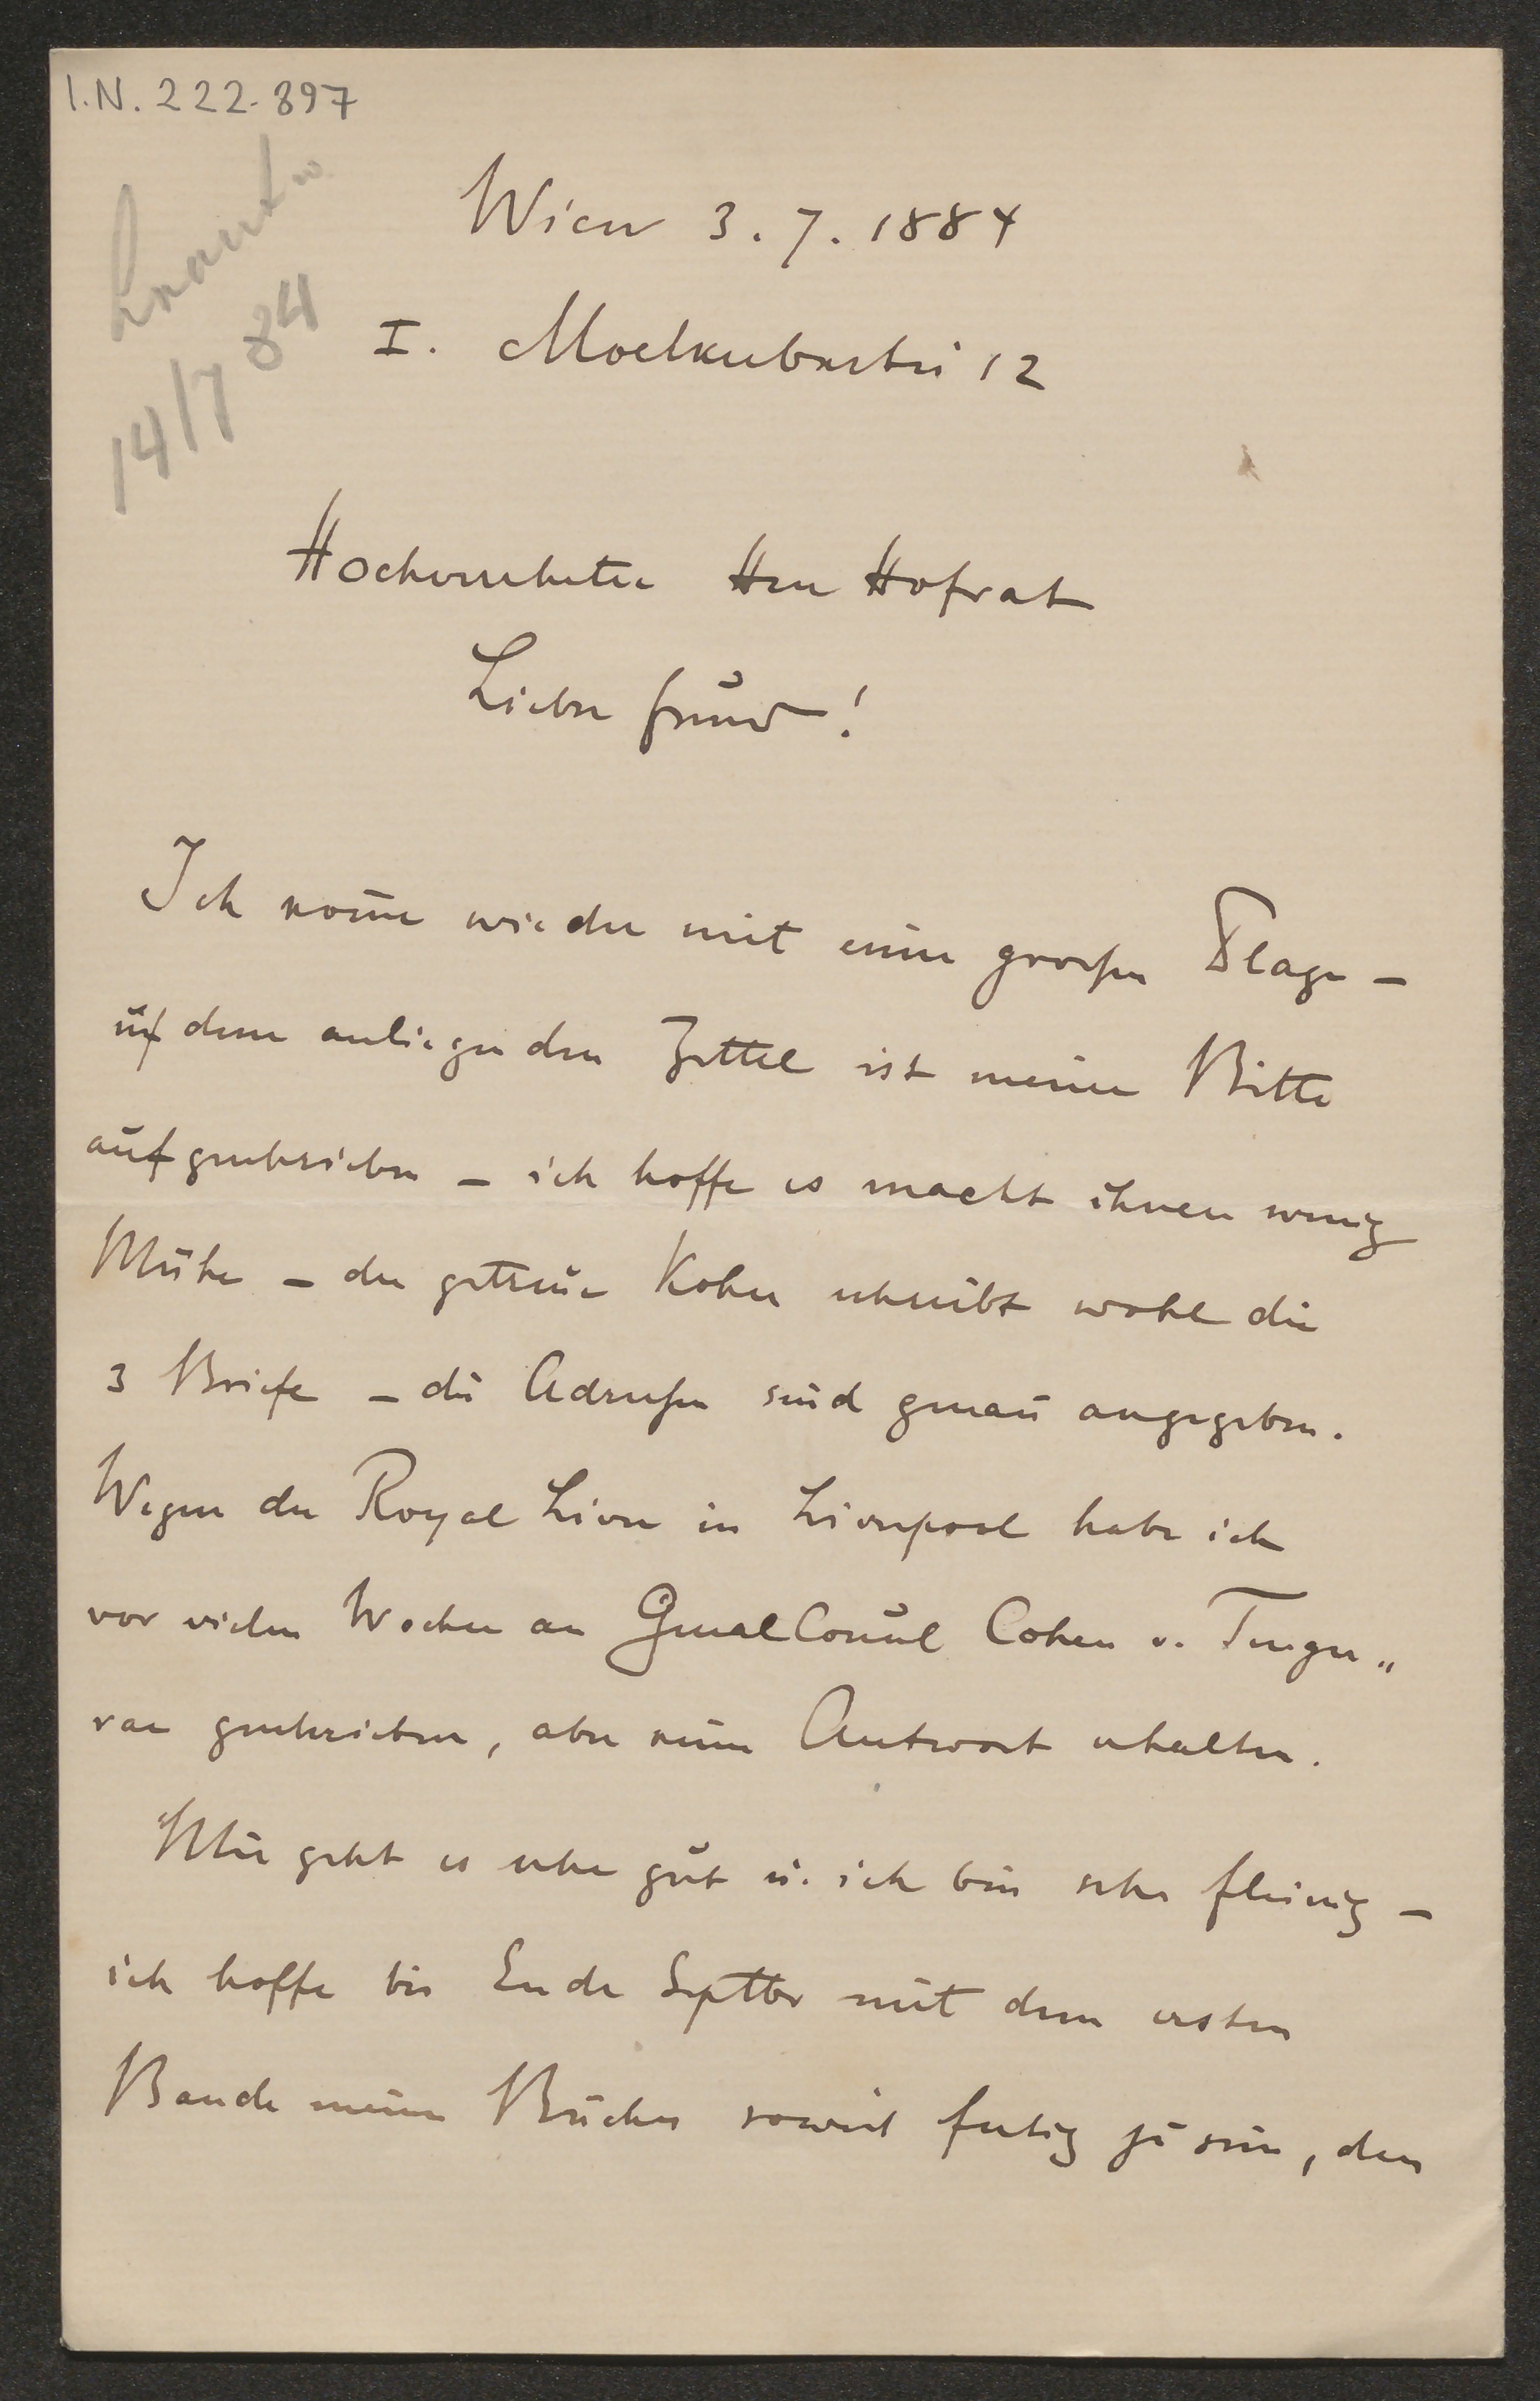 I.N. 222.897
14/7 84
Wien 3. 7. 1884
I. Moelkerbastei 12
Hochverehrter Herr Hofrat
Lieber Freund!
Ich kom̅e wieder mit einer grossen Plage –
auf dem anliegenden Zettel ist meine Bitte
aufgeschrieben – ich hoffe es macht ihnen wenig
Mühe – der getreue Kohn schreibt wohl die
3 Briefe – die Adressen sind genau angegeben.
Wegen der Royal Liver in Liverpool habe ich
vor vielen Wochen an GeneralConsul Cohen v.
geschrieben, aber keine Antwort erhalten.
Mir geht es sehr gut u. ich bin sehr fleissig –
ich hoffe bis Ende Septber mit dem ersten
Bande meines Buches soweit fertig zu sein, dass